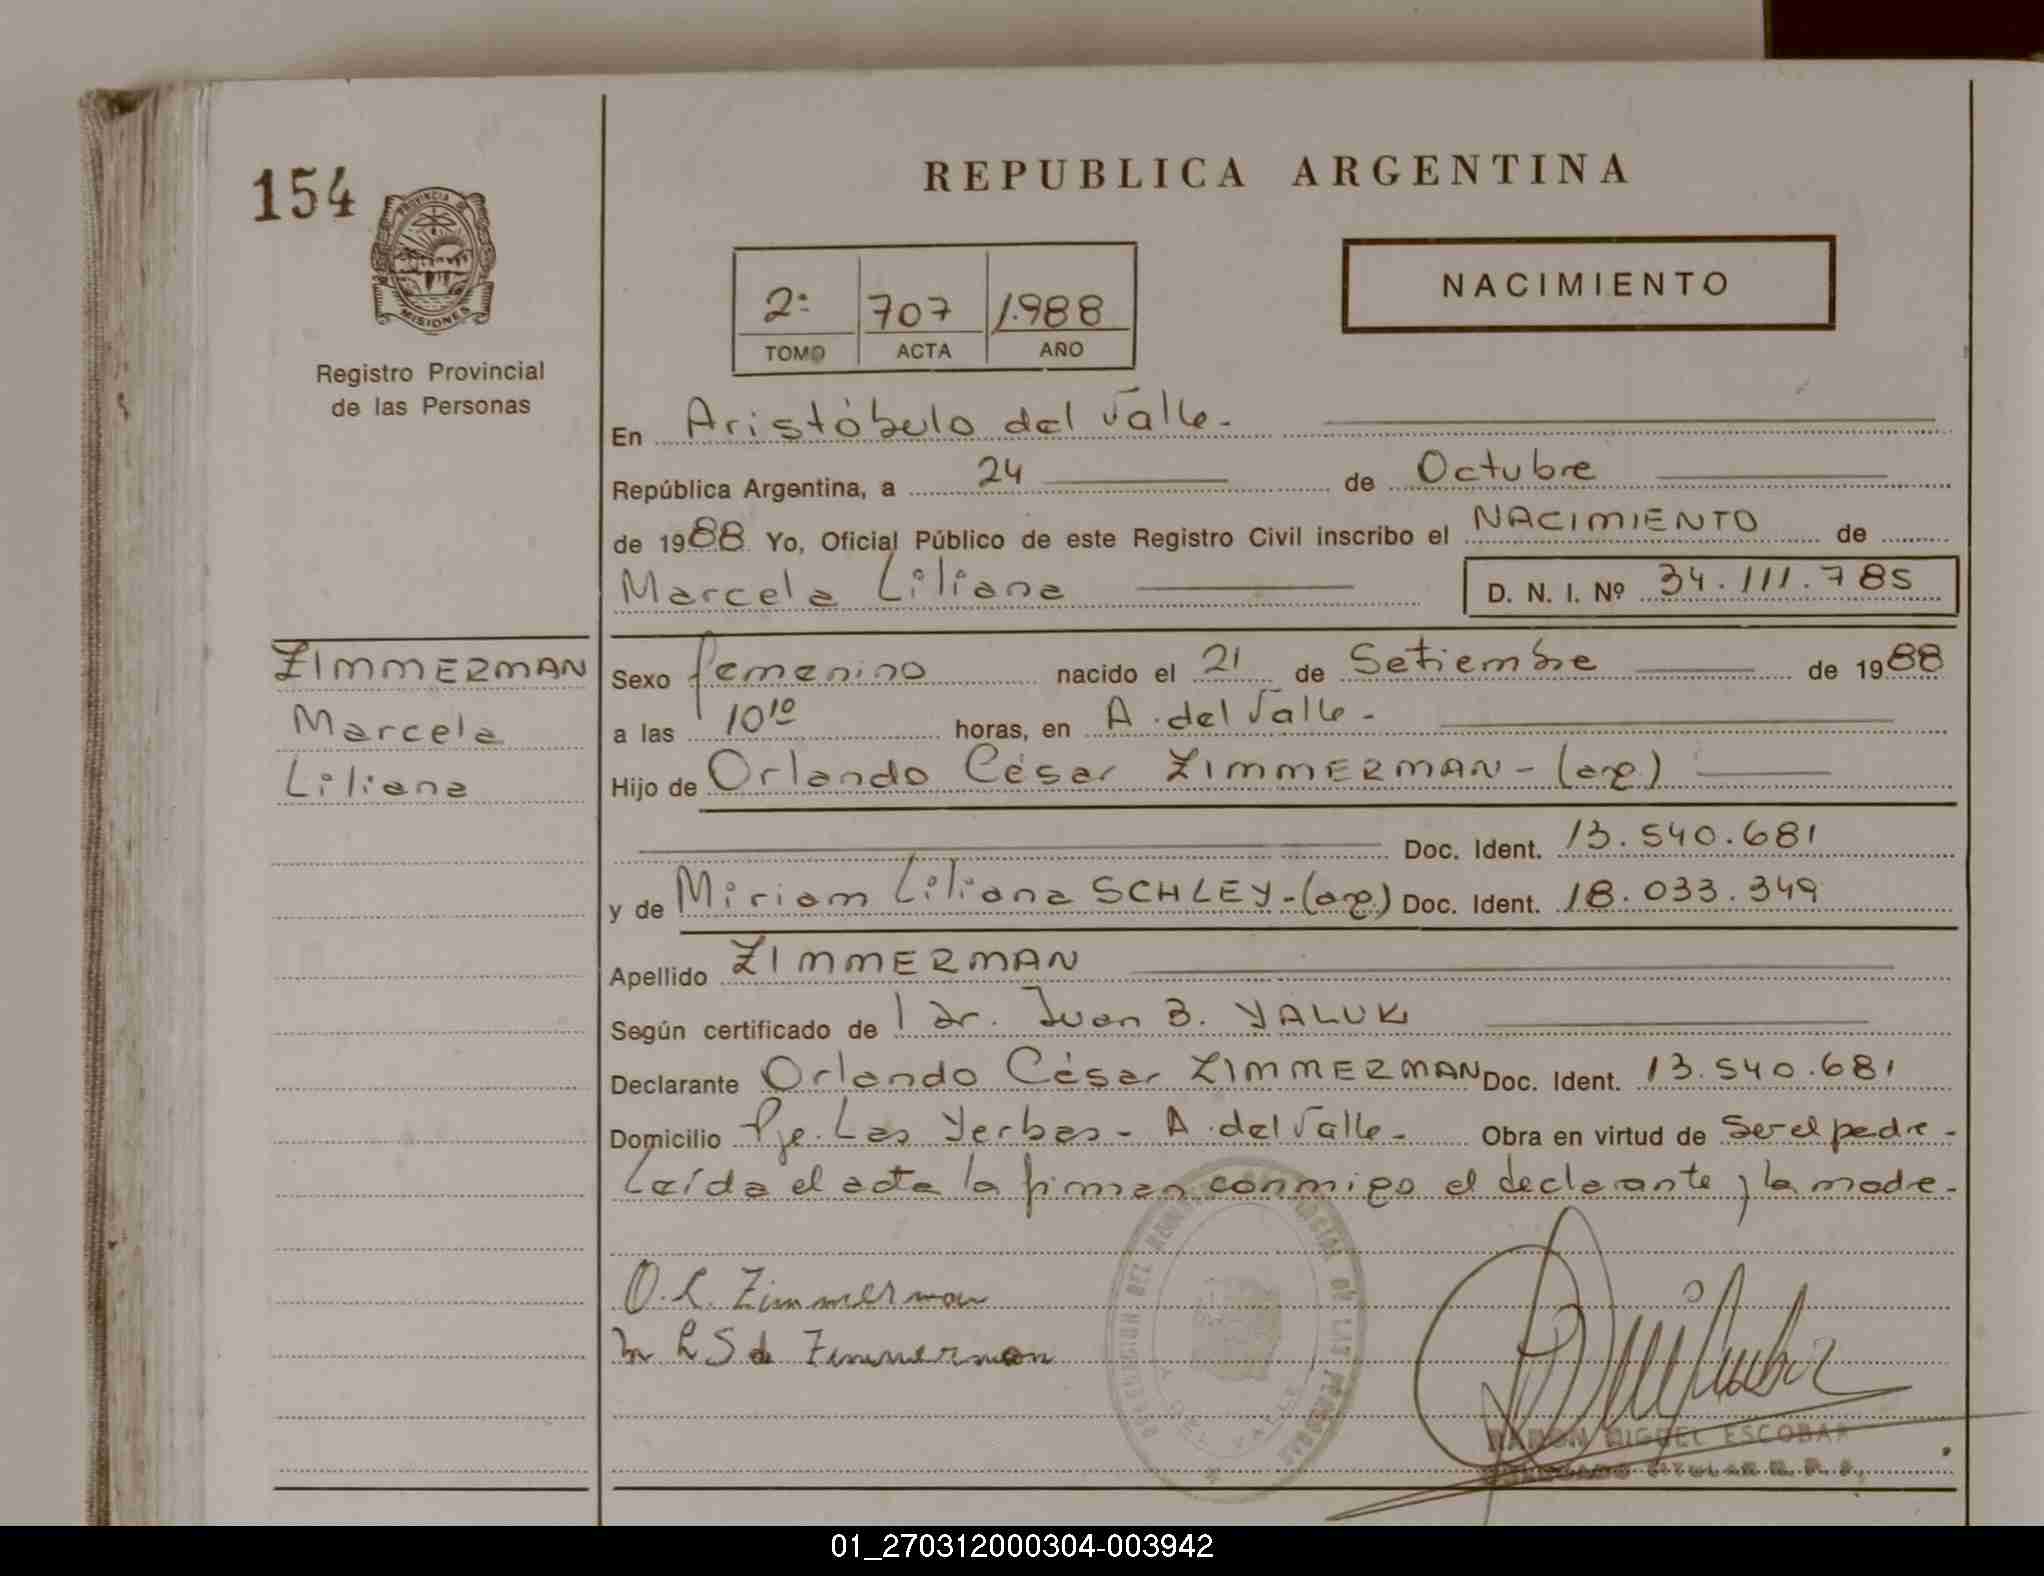 154
PROVINCIA DE
MISIONES
Registro Provincial
de las Personas
REPUBLICA ARGENTINA
2º 707 1.988
TOMO ACTA AÑO
NACIMIENTO
En Aristóbulo del Valle.-
República Argentina, a 24 de Octubre
de 1988 Yo, Oficial Público de este Registro Civil inscribo el NACIMIENTO de
Marcela Liliana D. N. I. Nº 34.111.785
ZIMMERMAN
Marcela
Liliana
Sexo femenino nacido el 21 de Setiembre de 1988
a las 10¹⁰ horas, en A. del Valle.-
Hijo de Orlando César ZIMMERMAN - (arg.)
Doc. Ident. 13.540.681
y de Miriam Liliana SCHLEY - (arg.) Doc. Ident. 18.033.349
Apellido ZIMMERMAN
Según certificado de l Dr. Juan B. YALUK
Declarante Orlando César ZIMMERMAN Doc. Ident. 13.540.681
Domicilio Pje. Las Yerbas - A. del Valle.- Obra en virtud de Ser el padre -
Leída el acta la firman conmigo el declarante y la madre.-
O. C. Zimmerman
M L S de Zimmerman
RAMON MIGUEL ESCOBAR
DELEGADO TITULAR R. P. P.
01_270312000304-003942